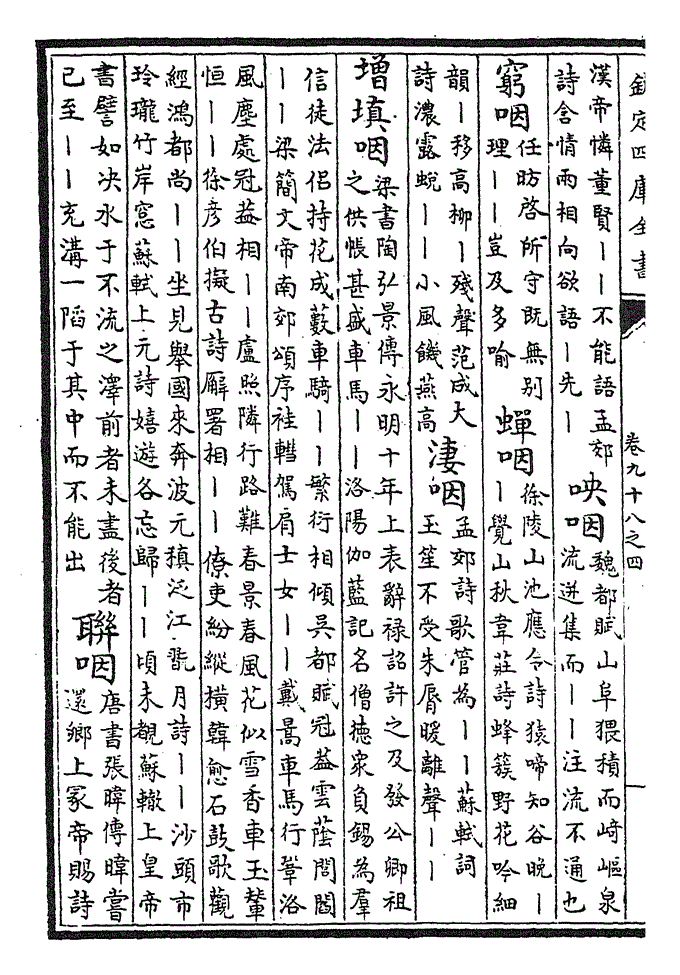 欽定四庫全書
卷九十八之四
漢帝憐董賢丨丨不能語孟郊
詩含情兩相向欲語丨先丨
咉咽
魏都賦山阜猥積而崎嶇泉
流迸集而丨丨注流不通也
窮咽
任昉啓所守既無別
理丨丨豈及多喻
蟬咽
徐陵山池應令詩猿啼知谷晚丨
丨覺山秋韋莊詩蜂簇野花吟細
韻丨移高柳丨殘聲范成大
詩濃露蛻丨丨小風饑燕高
淒咽
孟郊詩歌管為丨丨蘇軾詞
玉笙不受朱脣暖離聲丨丨
增填咽
梁書陶弘景傳永明十年上表辭祿詔許之及發公卿祖
之供帳甚盛車馬丨丨洛陽伽藍記名僧徳衆負錫為羣
信徒法侶持花成藪車騎丨丨繁衍相傾吳都賦冠葢雲蔭閭閻
丨丨梁簡文帝南郊頌序袿轊駕肩士女丨丨戴暠車馬行聾洛
風塵處冠葢相丨丨盧照隣行路難春景春風花似雪香車玉轝
恒丨丨徐彦伯擬古詩廨署相丨丨僚吏紛縱橫韓愈石鼓歌觀
經鴻都尚丨丨坐見舉國來奔波元稹泛江翫月詩丨丨沙頭市
玲瓏竹岸窓蘇軾上元詩嬉遊各忘歸丨丨頃未覩蘇轍上皇帝
書譬如決水于不流之澤前者未盡後者
已至丨丨充溝一陷于其中而不能出
聯咽
唐書張暐傳暐嘗
還鄉上冢帝賜詩